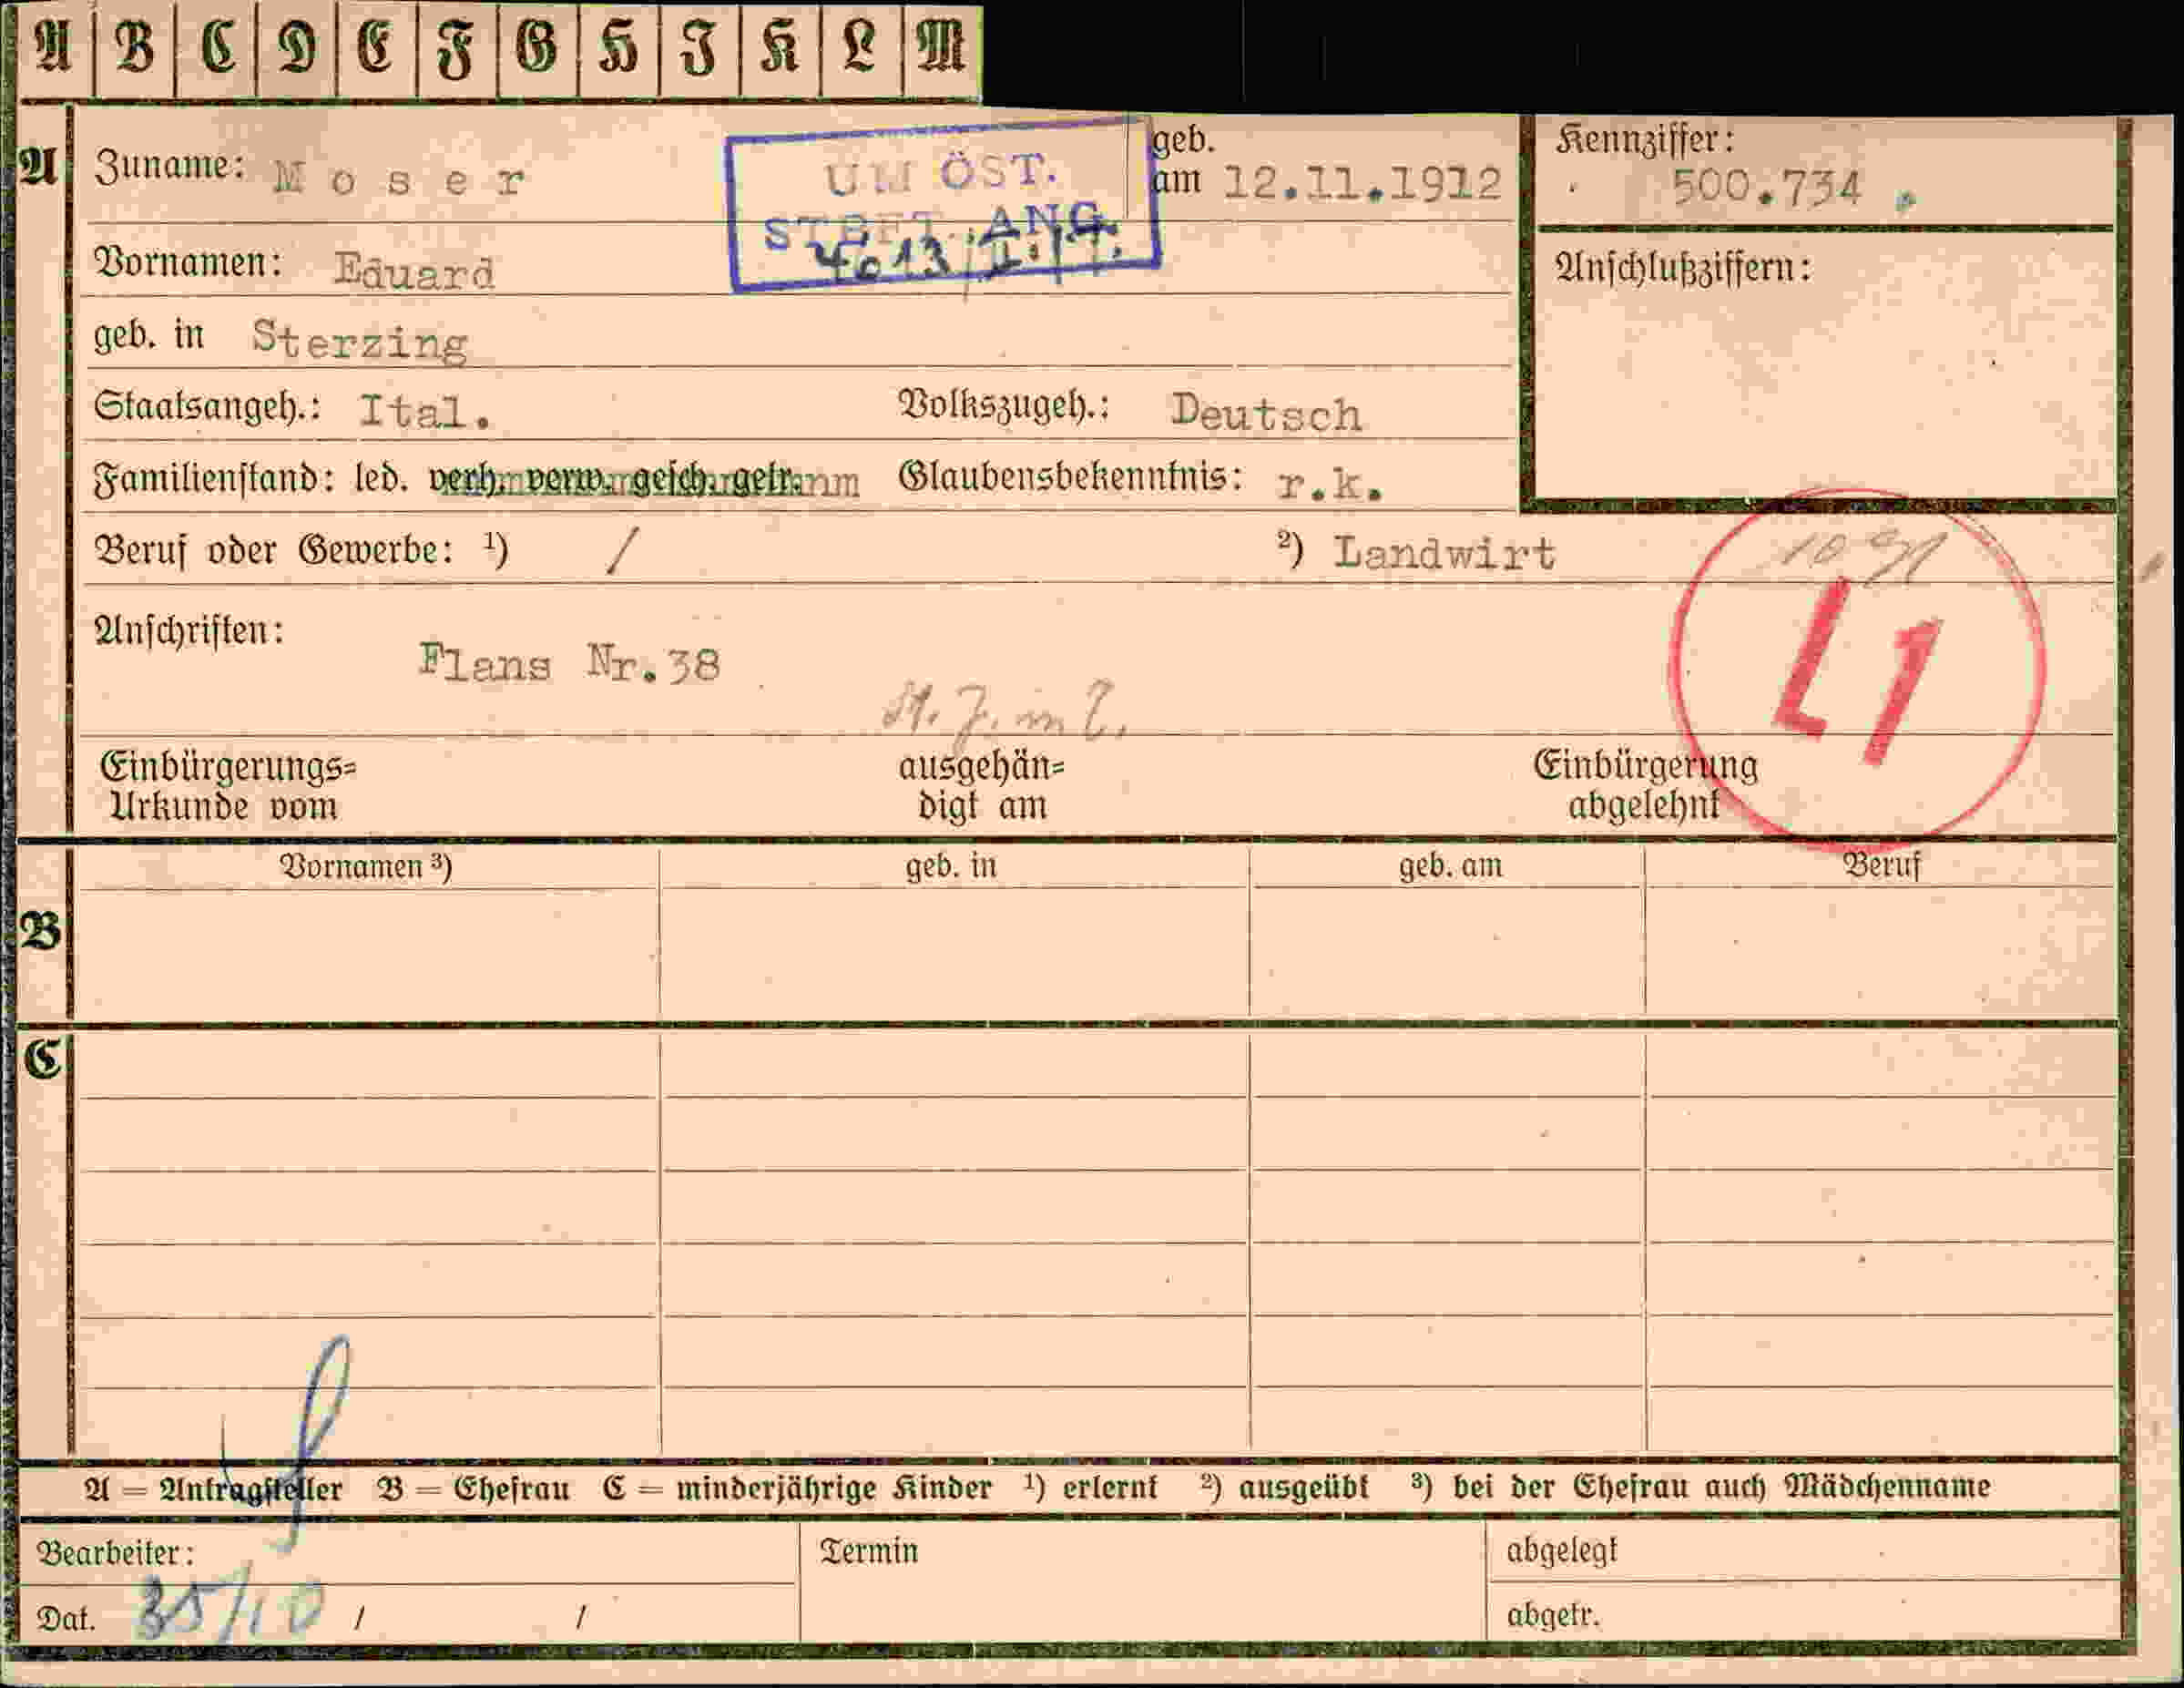 A B C D E F G H I K L M
A Zuname: Moser geb. am 12.11.1912 Kennziffer: 500.734
UM ÖST.
STBFT. ANG.
Vornamen: Eduard Anschlußziffern:
geb. in Sterzing
Staatsangeh.: Ital. Volkszugeh.: Deutsch
Familienstand: led. verh. verw. gesch. getr. Glaubensbekenntnis: r.k.
Beruf oder Gewerbe: ¹) / ²) Landwirt
L1
Anschriften:
Flans Nr.38
Einbürgerungs= ausgehän= Einbürgerung
Urkunde vom digt am abgelehnt
Vornamen ³) geb. in geb. am Beruf
B
C
A = Antragsteller B = Ehefrau C = minderjährige Kinder ¹) erlernt ²) ausgeübt ³) bei der Ehefrau auch Mädchenname
Bearbeiter: Termin abgelegt
Dat. / / abgetr.